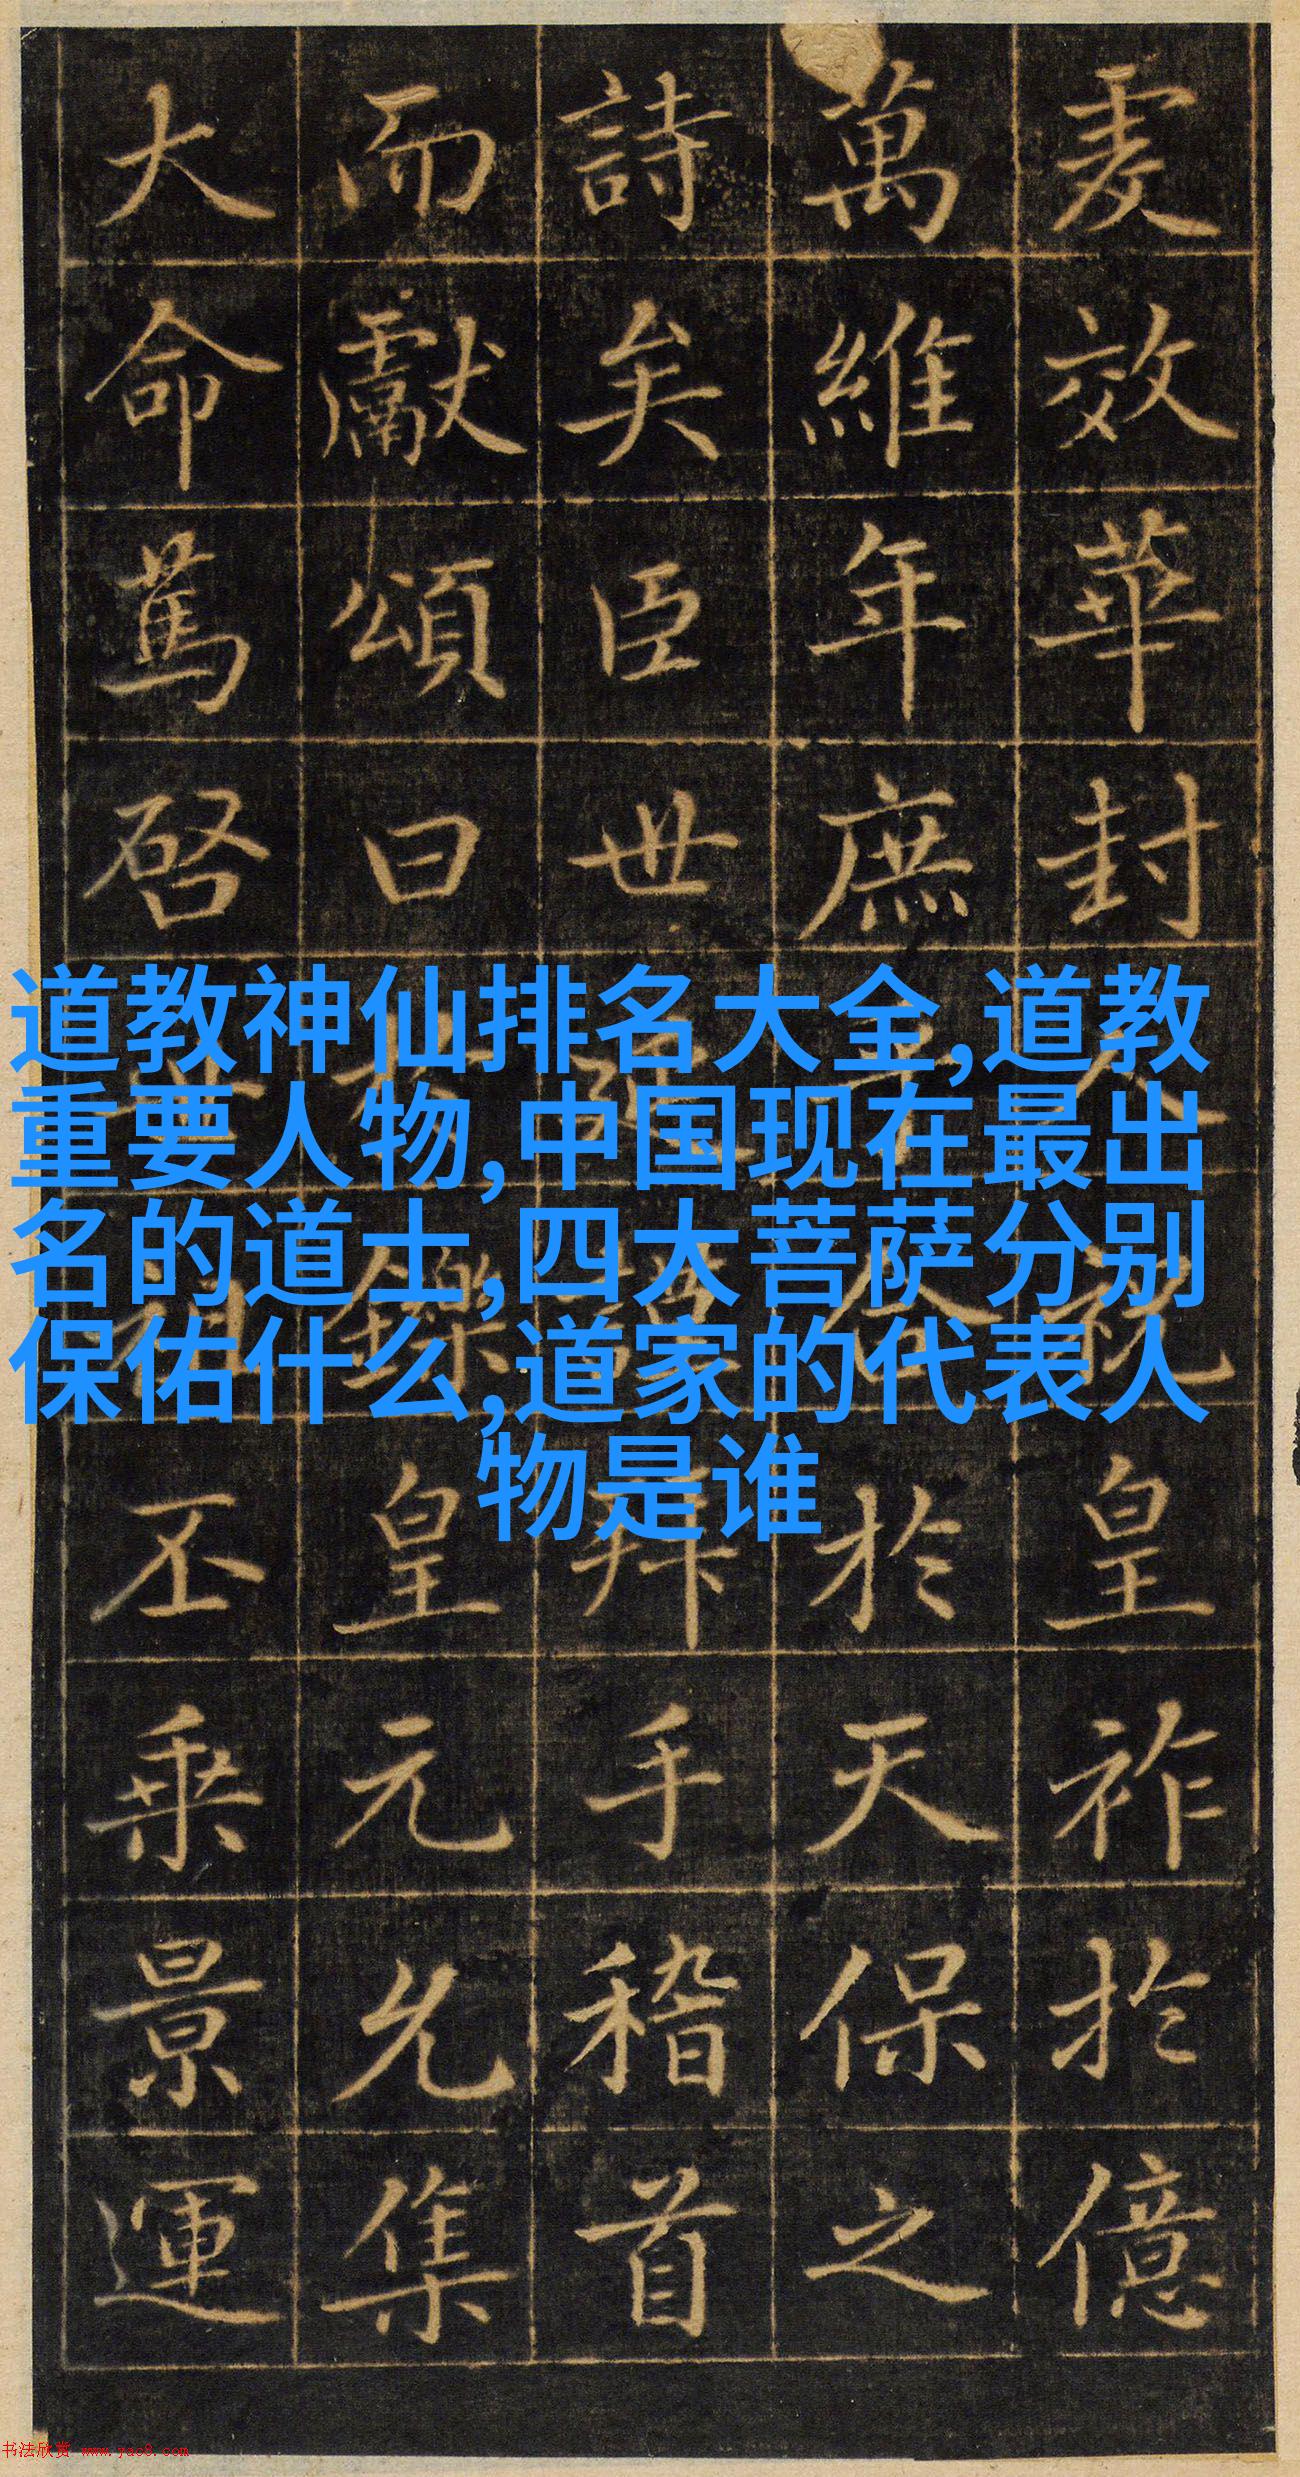 爰效華封祝皇祚於億
萬維年庶合於天保之
詩矣臣世延謹拜手稽首
而獻頌曰於鑠皇元允集
大命篤啓世祖丕乘景運
道教神仙排名大全,道教
重要人物,中国现在最出
名的道士,四大菩萨分别
保佑什么,道家的代表人
物是谁
书法欣赏 www.yac8.com